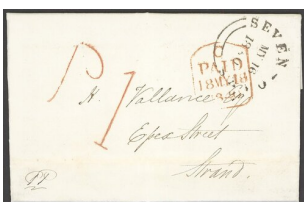 SEVEN
PAID
18 MY 18
P 1
H. Vallance Esq
Essex Street
Strand.